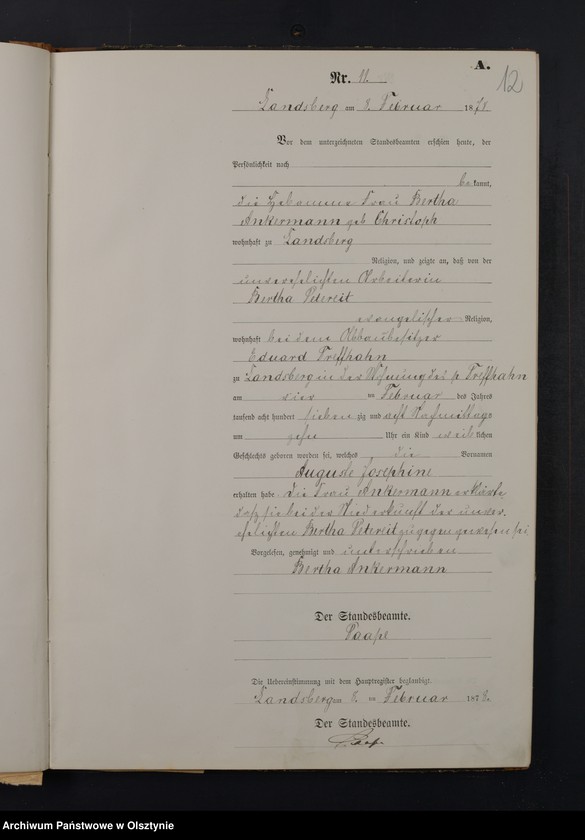 A.
12
Nr. 11.
Landsberg am 8. Februar 1878.
Vor dem unterzeichneten Standesbeamten erschien heute, der
Persönlichkeit nach
bekannt,
die Hebamme Frau Bertha
Ankermann geb Christoph
wohnhaft zu Landsberg
Religion, und zeigte an, daß von der
unverehelichten Arbeiterin
Bertha Petereit
evangelischer Religion,
wohnhaft bei dem Abbaubesitzer
Eduard Treffhahn
zu Landsberg in der Wohnung des p Treffhahn
am vier ten Februar des Jahres
tausend acht hundert sieben zig und acht Nachmittags
um zehn Uhr ein Kind weiblichen
Geschlechts geboren worden sei, welches die Vornamen
Auguste Josephine
erhalten habe. die Frau Ankermann erklärte
daß sie bei der Niederkunft der unver-
ehelichten Bertha Petereit zugegen gewesen sei
Vorgelesen, genehmigt und unterschrieben
Bertha Ankermann
Der Standesbeamte.
Paape
Die Uebereinstimmung mit dem Hauptregister beglaubigt.
Landsberg am 8. ten Februar 1878.
Der Standesbeamte.
Archiwum Państwowe w Olsztynie